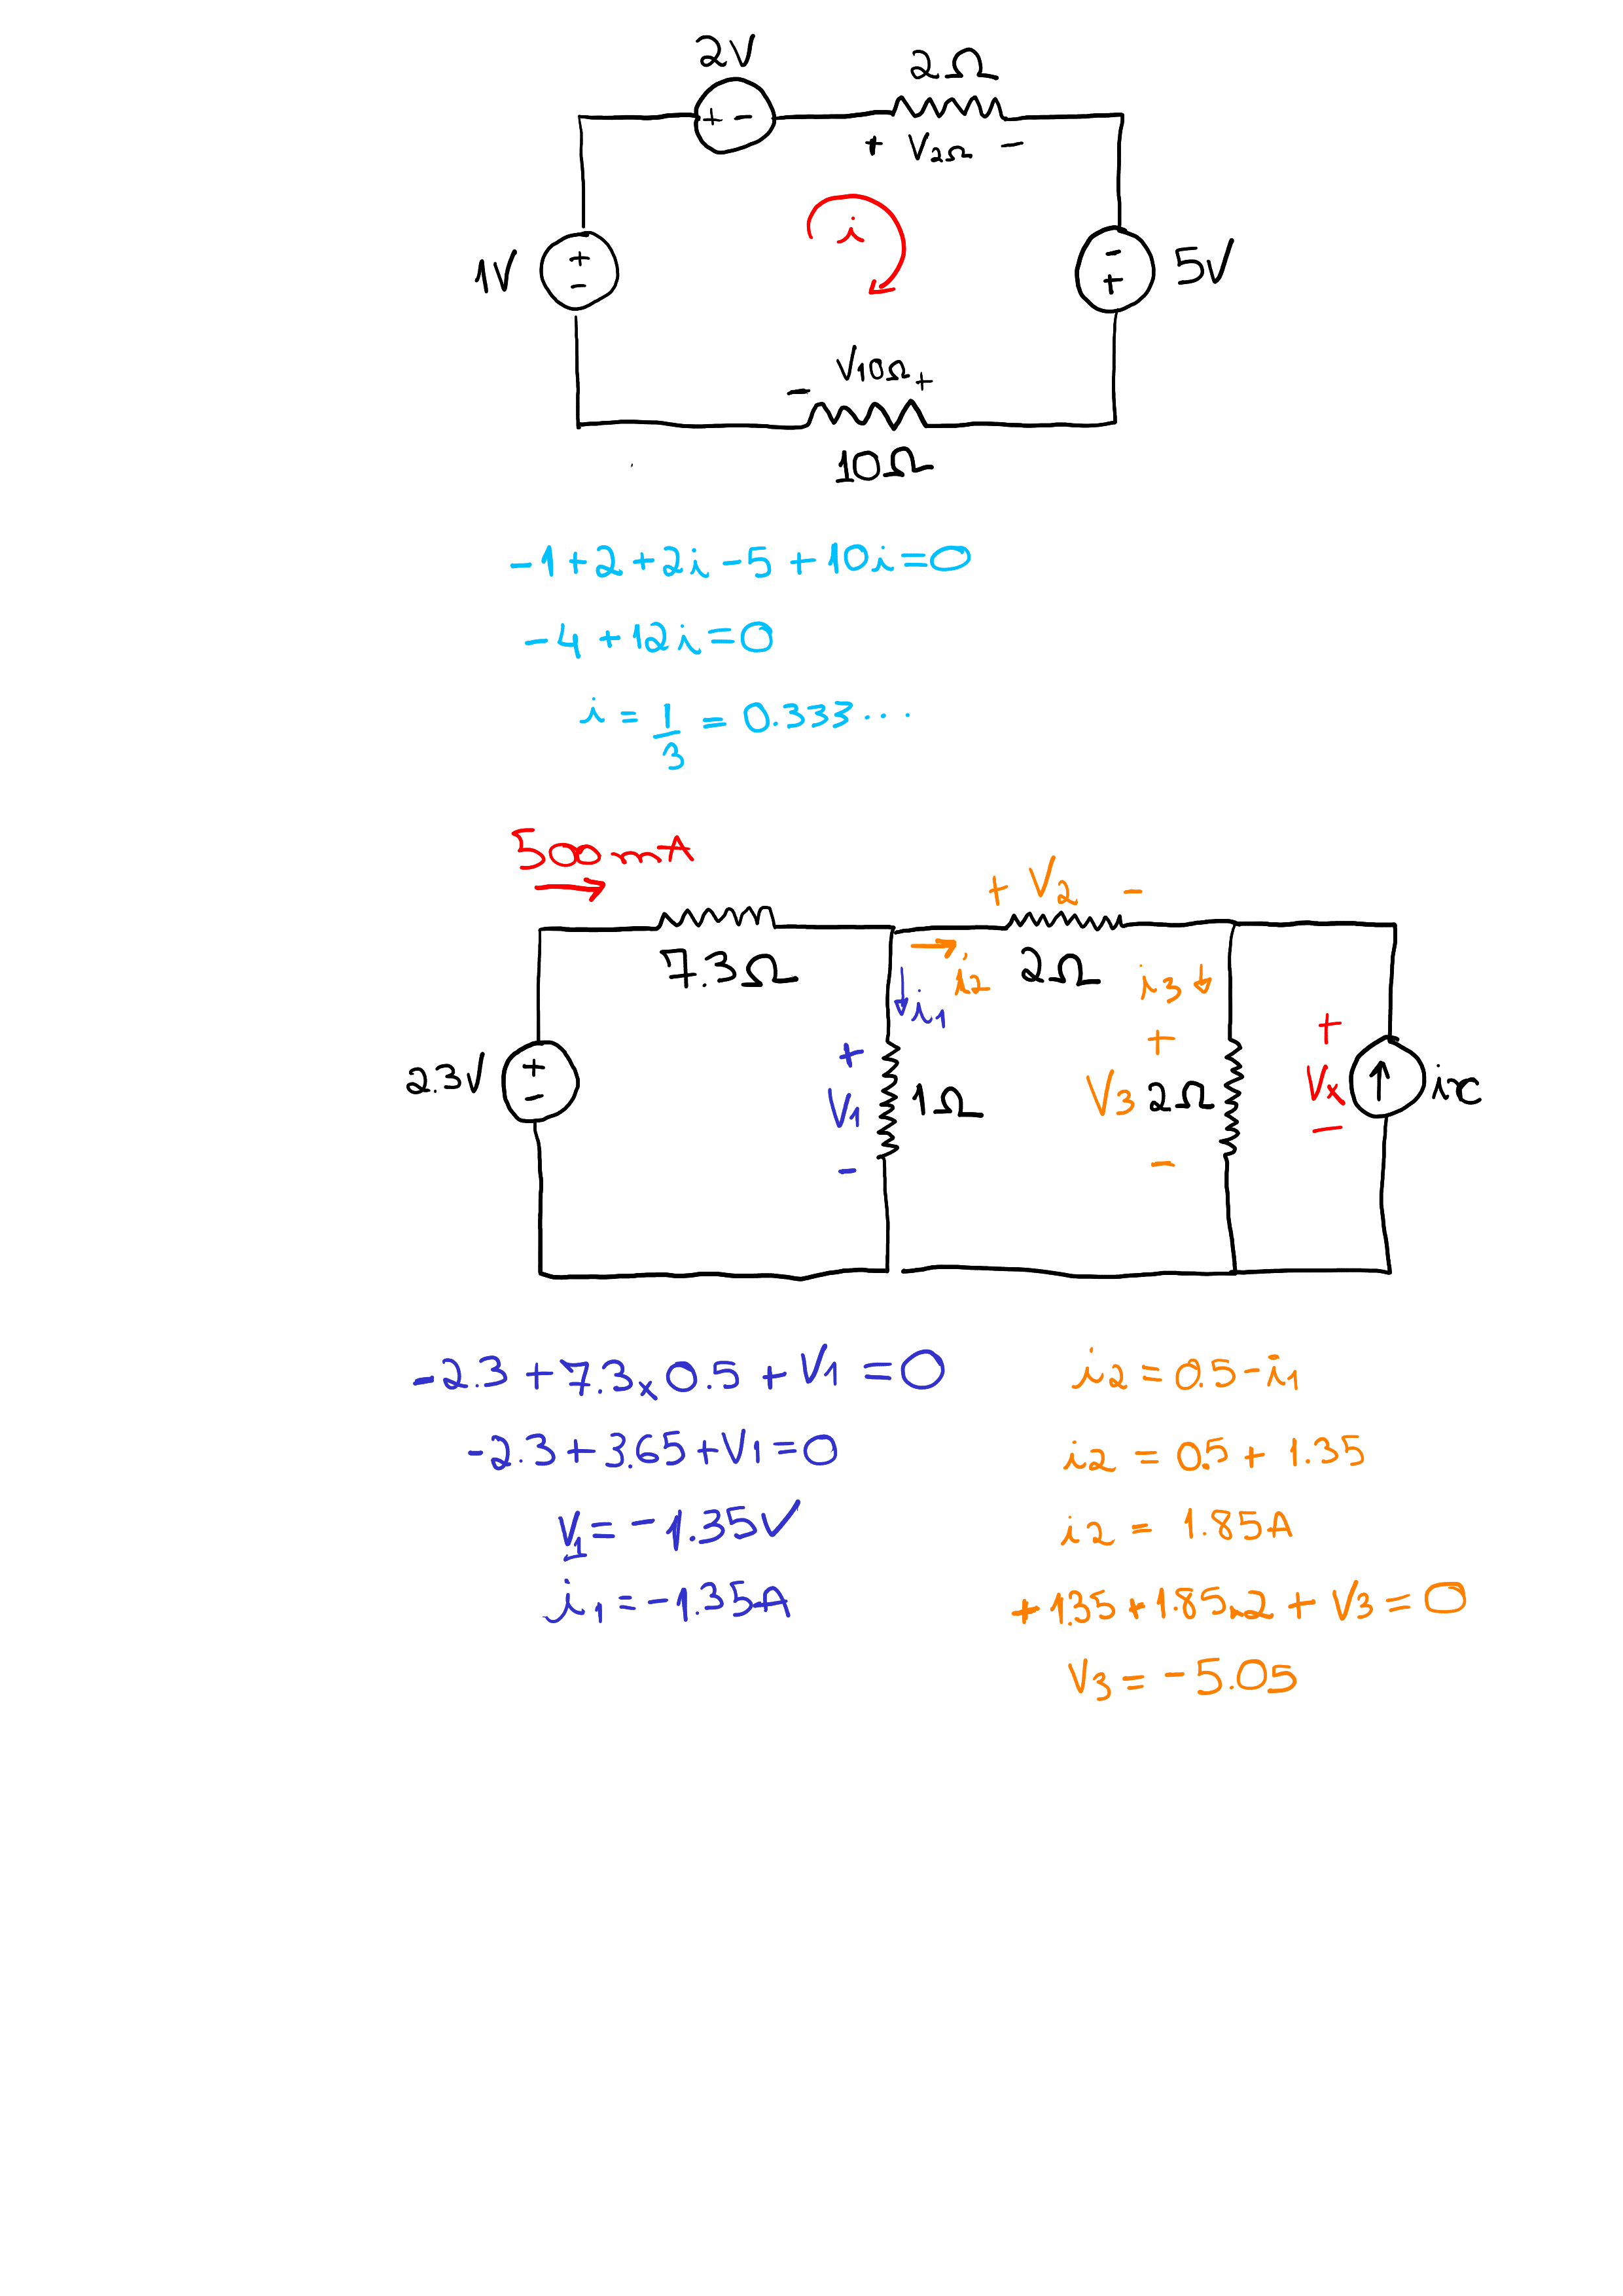 2V
2Ω
+ -
+ V2Ω -
1V
+
-
i
-
+
5V
- V10Ω +
10Ω
-1+2+2i-5+10i=0
-4+12i=0
i = 1/3 = 0.333...
500mA
+ V2 -
7.3Ω
i2
2Ω
i3
i1
2.3V
+
-
+
V1
-
1Ω
+
V3
-
2Ω
+
Vx
-
ix
-2.3+7.3x0.5+V1=0
-2.3+3.65+V1=0
V1=-1.35V
i1=-1.35A
i2=0.5-i1
i2=0.5+1.35
i2=1.85A
+1.35+1.85x2+V3=0
V3=-5.05